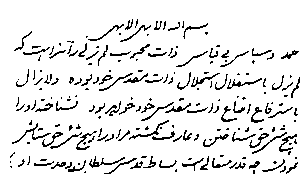 بسم الله الابهی الابهی
حمد و سپاس بی قیاس ذات محبوب لم یزلی را سزاست که
لم یزل باستقلال استجلال ذات مقدس خود بوده و لایزال
باسترفاع امتناع ذات مقدس خود خواهد بود نشناخته او را
هیچ شئ حق شناختن و عارف نگشته مر او را هیچ شئ حق ستایش
نمودن چه قدر متعالی است بساط قدس سلطان وحدت او